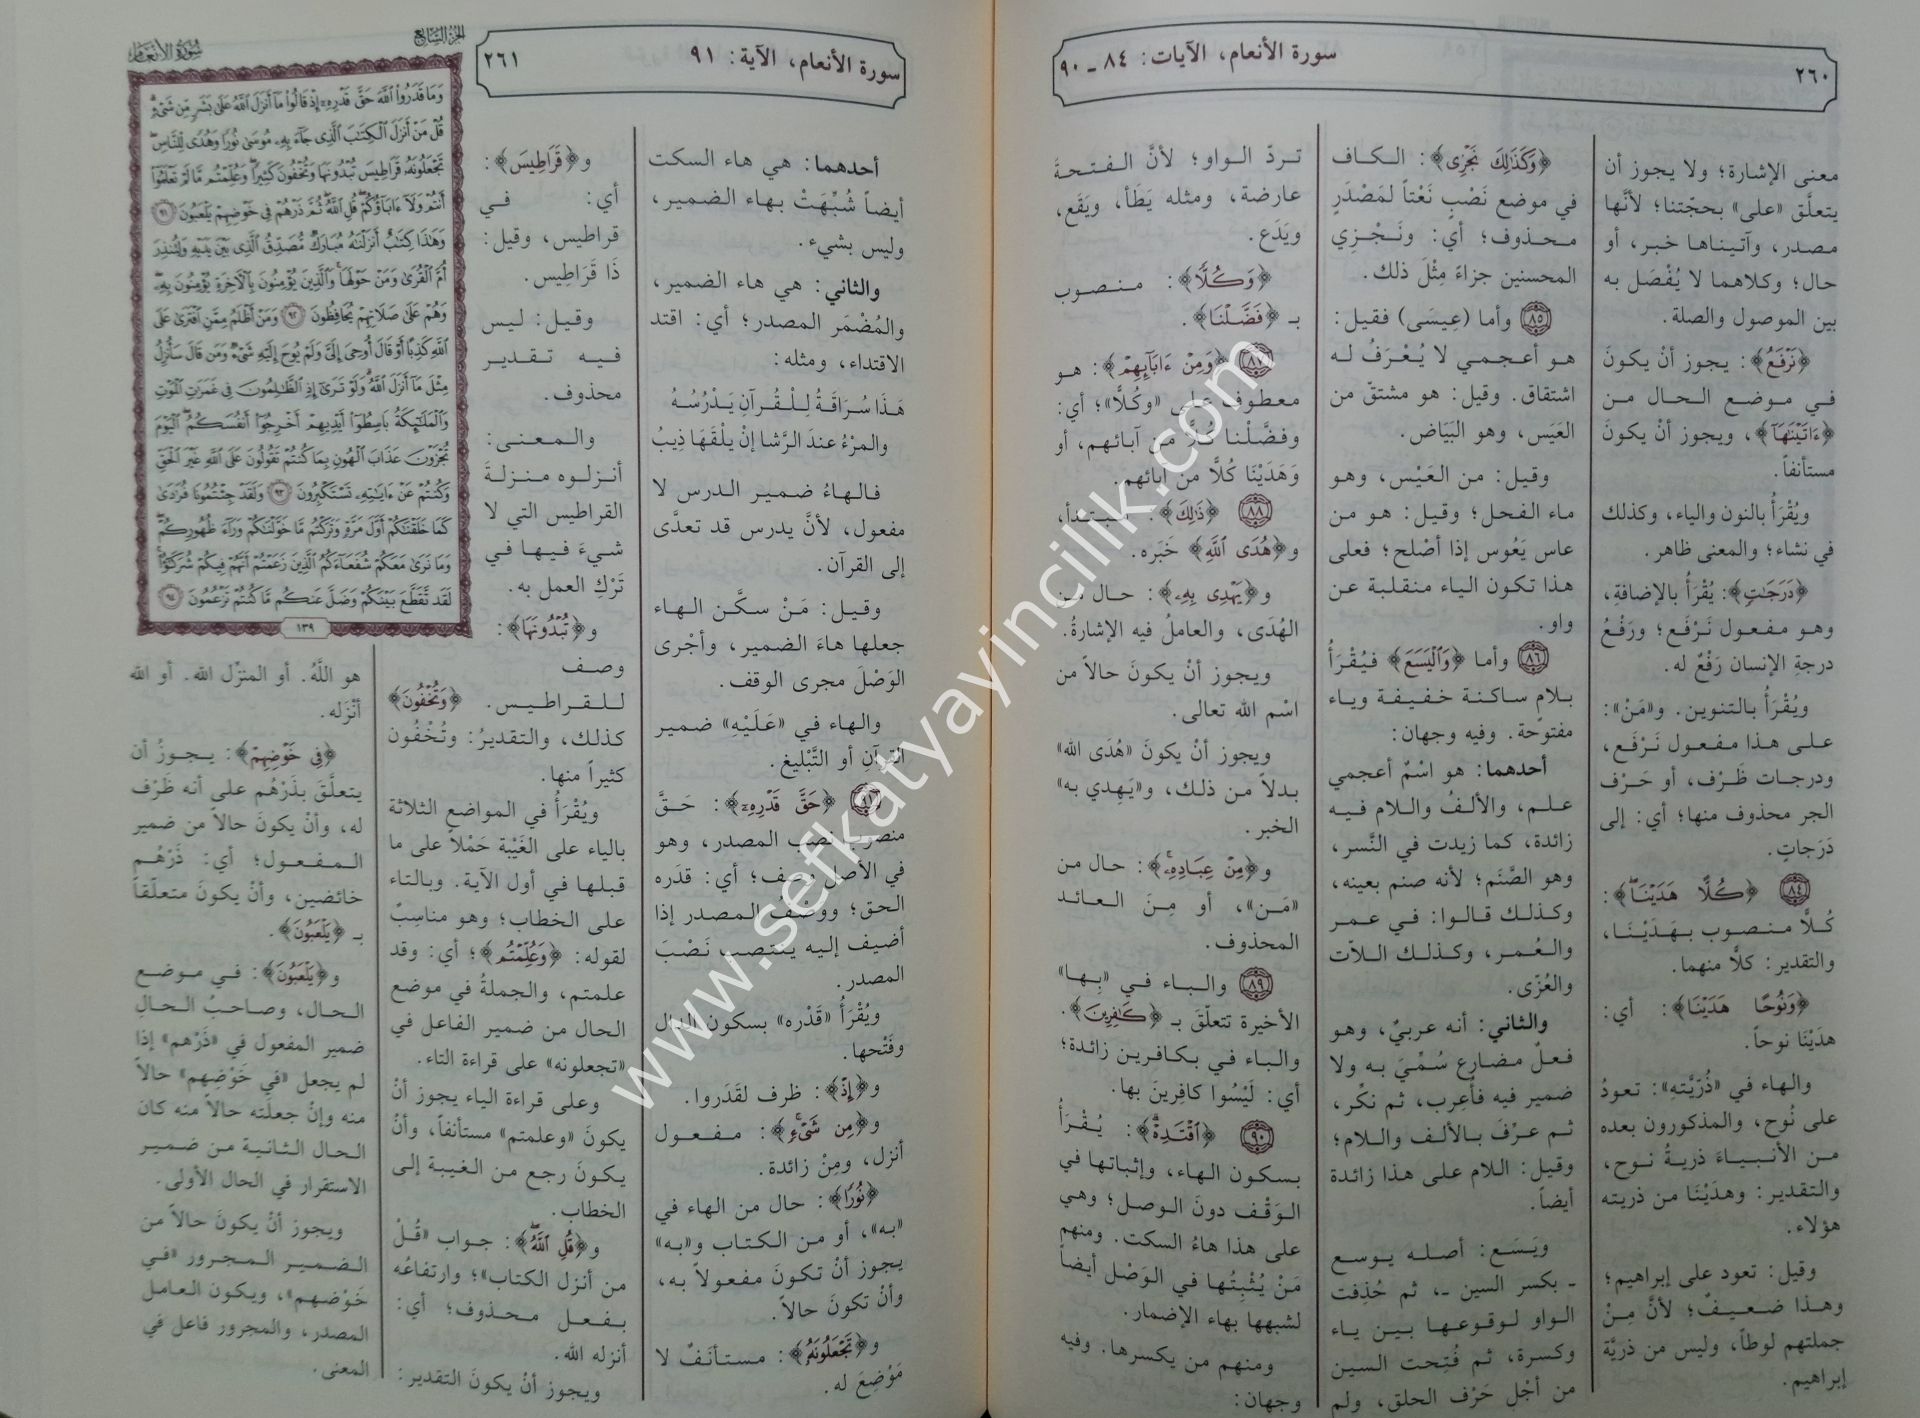 ٢٦٠
سورة الأنعام، الآيات: ٨٤ ـ ٩٠
معنى الإشارة؛ ولا يجوز أن
يتعلّق «على» بحجّتنا؛ لأنَّها
مصدر، وآتيناها خبر، أو
حال؛ وكلاهما لا يُفْصَل به
بين الموصول والصلة.
﴿نَرْفَعُ﴾: يجوز أنْ يكونَ
في موضع الحال من
﴿ءَاتَيْنَٰهَآ﴾، ويجوز أنْ يكونَ
مستأنفاً.
ويُقْرَأُ بالنون والياء، وكذلك
في نشاء؛ والمعنى ظاهر.
﴿دَرَجَٰتٍ﴾: يُقْرَأُ بالإضافةِ،
وهو مفعول نَرْفَع؛ ورَفْعُ
درجةِ الإنسان رَفْعٌ له.
ويُقْرَأُ بالتنوين. و«مَنْ»:
على هذا مفعول نَرْفَع،
ودرجات ظَرْف، أو حَرْف
الجر محذوف منها؛ أي: إلى
دَرَجاتٍ.
٨٤ ﴿كُلًّا هَدَيْنَا﴾:
كُلًّا منصوب بهَدَيْنَا،
والتقدير: كلًّا منهما.
﴿وَنُوحًا هَدَيْنَا﴾: أي:
هدَيْنَا نوحاً.
والهاء في «ذُرّيَّتِهِ»: تعودُ
على نُوح، والمذكورون بعده
من الأنبياءَ ذريةُ نوح،
والتقدير: وهدَيْنَا من ذريته
هؤلاء.
وقيل: تعود على إبراهيم؛
وهذا ضعيفٌ؛ لأنَّ مِنْ
جملتهم لوطاً، وليس من ذريَّة
إبراهيم.
﴿وَكَذَٰلِكَ نَجْزِى﴾: الكاف
في موضع نَصْبٍ نَعْتاً لمَصْدَرٍ
محذوف؛ أي: ونَجْزِي
المحسنين جزاءً مِثْلَ ذلك.
٨٥ وأما (عِيسَى) فقيل:
هو أعجمي لا يُعْرَفُ له
اشتقاق. وقيل: هو مشتقّ من
العَيَس، وهو البَيَاض.
وقيل: من العَيْس، وهو
ماء الفحل؛ وقيل: هو من
عاس يَعُوس إذا أصْلح؛ فعلى
هذا تكون الياء منقلبة عن
واو.
٨٦ وأما ﴿وَٱلْيَسَعَ﴾ فيُقْرَأُ
بلامٍ ساكنة خفيفة وياء
مفتوحة. وفيه وجهان:
أحدهما: هو اسْمٌ أعجمي
علم، والألفُ واللام فيه
زائدة، كما زيدت في النَّسر،
وهو الصَّنَم؛ لأنه صنم بعينه،
وكذلك قالوا: في عمر
والعُمر، وكذلك اللاّت
والعُزّى.
والثاني: أنه عربيٌ، وهو
فعلٌ مضارع سُمِّيَ به ولا
ضمير فيه فأُعرِب، ثم نكِّر،
ثم عرِّفَ بالألف واللام؛
وقيل: اللام على هذا زائدة
أيضاً.
ويَسَع: أصله يوسع
ـ بكسر السين ـ، ثم حُذِفت
الواو لوقوعها بين ياء
وكسرة، ثم فُتِحت السين
من أجْلِ حَرْف الحلق، ولم
تردّ الواو؛ لأنَّ الفتحة
عارضة، ومثله يَطَأ، ويَقَع،
ويَدَع.
﴿وَكُلًّا﴾: منصوب
بـ ﴿فَضَّلْنَا﴾.
٨٧ ﴿وَمِنْ ءَابَآئِهِمْ﴾: هو
معطوف على «وكُلًّا»؛ أي:
وفضَّلْنا كُلًّا من آبائهم، أو
وَهَدَيْنَا كُلًّا من آبائهم.
٨٨ ﴿ذَٰلِكَ﴾: مبتدأ،
و﴿هُدَى ٱللَّهِ﴾ خَبَره.
و﴿يَهْدِى بِهِۦ﴾: حال من
الهُدَى، والعاملُ فيه الإشارةُ.
ويجوز أنْ يكونَ حالاً من
اسْم الله تعالى.
ويجوز أنْ يكونَ «هُدَى الله»
بدلاً من ذلك، و«يَهدِي به»
الخبر.
و﴿مِنْ عِبَادِهِۦ﴾: حال من
«مَن»، أو مِنَ العائد
المحذوف.
٨٩ والباء في «بِها»
الأخيرة تتعلّق بـ ﴿كَٰفِرِينَ﴾.
والباء في بكافرين زائدة؛
أي: لَيْسُوا كافِرِينَ بها.
٩٠ ﴿ٱقْتَدِهْ﴾: يُقْرَأُ
بسكون الهاء، وإثباتها في
الوَقْف دونَ الوصل؛ وهي
على هذا هاءُ السكت. ومنهم
مَنْ يُثْبِتُها في الوَصْل أيضاً
لشبهها بهاء الإضمار.
ومنهم من يكسرها. وفيه
وجهان:
سورة الأنعام، الآية: ٩١
٢٦١
أحدهما: هي هاء السكت
أيضاً شُبِّهَتْ بهاء الضمير،
وليس بشيء.
والثاني: هي هاء الضمير،
والمُضْمَر المصدر؛ أي: اقتد
الاقتداء، ومثله:
هَذَا سُرَاقَةُ لِلْقُرآنِ يَدْرُسُهُ
والمرْءُ عندَ الرَّشا إنْ يلْقَهَا ذِيبُ
فالهاءُ ضمير الدرس لا
مفعول، لأنَّ يدرس قد تعدَّى
إلى القرآن.
وقيل: مَنْ سكَّن الهاء
جعلها هاءَ الضمير، وأجْرى
الوَصْلَ مجرى الوقف.
والهاء في «عَلَيْهِ» ضمير
القرآنِ أو التَّبْليغ.
٩١ ﴿حَقَّ قَدْرِهِۦٓ﴾: حَقَّ
منصوب نصْب المصدر، وهو
في الأصل وصْف؛ أي: قدَره
الحق؛ ووصْفُ المصدر إذا
أضيف إليه ينتصب نَصْبَ
المصدر.
ويُقْرَأُ «قَدْره» بسكون الدال
وفَتْحها.
و﴿إِذْ﴾: ظرف لقَدَروا.
و﴿مِن شَىْءٍ﴾: مفعول
أنزل، ومِنْ زائدة.
﴿نُورًا﴾: حال من الهاء في
«به»، أو من الكتاب و«به»
يجوز أنْ تكونَ مفعولاً به،
وأنْ تكونَ حالاً.
و﴿تَجْعَلُونَهُۥ﴾: مستأنَفٌ لا
مَوْضِعَ له.
و﴿قَرَاطِيسَ﴾:
أي: في
قراطيس، وقيل:
ذَا قَرَاطِيس.
وقيل: ليس
فيه تقدير
محذوف.
والمعنى:
أنزلوه منزلةَ
القراطيس التي لا
شيءَ فيها في
تَرْكِ العمل به.
و﴿تُبْدُونَهَا﴾:
وصف
للقراطيس. ﴿وَتُخْفُونَ﴾
كذلك، والتقديرُ: وتُخْفُون
كثيراً منها.
ويُقْرَأُ في المواضع الثلاثة
بالياء على الغَيْبة حَمْلاً على ما
قبلها في أول الآية. وبالتاء
على الخطاب؛ وهو مناسِبٌ
لقوله: ﴿وَعُلِّمْتُم﴾؛ أي: وقد
علمتم، والجملةُ في موضع
الحال من ضمير الفاعل في
«تجعلونه» على قراءة التاء.
وعلى قراءة الياء يجوز أنْ
يكونَ «وعلمتم» مستأنفاً، وأنْ
يكونَ رجع من الغيبة إلى
الخطاب.
و﴿قُلِ ٱللَّهُ﴾: جواب «قُلْ
من أنزل الكتاب»؛ وارتفاعُه
بفعل محذوف؛ أي:
أنزله الله.
ويجوز أنْ يكونَ التقدير:
الجزء السابع
سورة الأنعام
وَمَا قَدَرُوا۟ ٱللَّهَ حَقَّ قَدْرِهِۦٓ إِذْ قَالُوا۟ مَآ أَنزَلَ ٱللَّهُ عَلَىٰ بَشَرٍ مِّن شَىْءٍ
قُلْ مَنْ أَنزَلَ ٱلْكِتَٰبَ ٱلَّذِى جَآءَ بِهِۦ مُوسَىٰ نُورًا وَهُدًى لِّلنَّاسِ
تَجْعَلُونَهُۥ قَرَاطِيسَ تُبْدُونَهَا وَتُخْفُونَ كَثِيرًا وَعُلِّمْتُم مَّا لَمْ تَعْلَمُوٓا۟
أَنتُمْ وَلَآ ءَابَآؤُكُمْ قُلِ ٱللَّهُ ثُمَّ ذَرْهُمْ فِى خَوْضِهِمْ يَلْعَبُونَ ٩١
وَهَٰذَا كِتَٰبٌ أَنزَلْنَٰهُ مُبَارَكٌ مُّصَدِّقُ ٱلَّذِى بَيْنَ يَدَيْهِ وَلِتُنذِرَ
أُمَّ ٱلْقُرَىٰ وَمَنْ حَوْلَهَا وَٱلَّذِينَ يُؤْمِنُونَ بِٱلْءَاخِرَةِ يُؤْمِنُونَ بِهِۦ
وَهُمْ عَلَىٰ صَلَاتِهِمْ يُحَافِظُونَ ٩٢ وَمَنْ أَظْلَمُ مِمَّنِ ٱفْتَرَىٰ عَلَى
ٱللَّهِ كَذِبًا أَوْ قَالَ أُوحِىَ إِلَىَّ وَلَمْ يُوحَ إِلَيْهِ شَىْءٌ وَمَن قَالَ سَأُنزِلُ
مِثْلَ مَآ أَنزَلَ ٱللَّهُ وَلَوْ تَرَىٰٓ إِذِ ٱلظَّٰلِمُونَ فِى غَمَرَٰتِ ٱلْمَوْتِ
وَٱلْمَلَٰٓئِكَةُ بَاسِطُوٓا۟ أَيْدِيهِمْ أَخْرِجُوٓا۟ أَنفُسَكُمُ ٱلْيَوْمَ
تُجْزَوْنَ عَذَابَ ٱلْهُونِ بِمَا كُنتُمْ تَقُولُونَ عَلَى ٱللَّهِ غَيْرَ ٱلْحَقِّ
وَكُنتُمْ عَنْ ءَايَٰتِهِۦ تَسْتَكْبِرُونَ ٩٣ وَلَقَدْ جِئْتُمُونَا فُرَٰدَىٰ
كَمَا خَلَقْنَٰكُمْ أَوَّلَ مَرَّةٍ وَتَرَكْتُم مَّا خَوَّلْنَٰكُمْ وَرَآءَ ظُهُورِكُمْ
وَمَا نَرَىٰ مَعَكُمْ شُفَعَآءَكُمُ ٱلَّذِينَ زَعَمْتُمْ أَنَّهُمْ فِيكُمْ شُرَكَٰٓؤُا۟
لَقَد تَّقَطَّعَ بَيْنَكُمْ وَضَلَّ عَنكُم مَّا كُنتُمْ تَزْعُمُونَ ٩٤
١٣٩
هو اللَّهُ. أو المنزّل الله. أو الله
أنْزَله.
﴿فِى خَوْضِهِمْ﴾: يجوزُ أن
يتعلّقَ بذَرْهُم على أنه ظَرْف
له، وأنْ يكونَ حالاً من ضمير
المفعول؛ أي: ذَرْهُم
خائضين، وأنْ يكونَ متعلّقاً
بـ ﴿يَلْعَبُونَ﴾.
و﴿يَلْعَبُونَ﴾: في موضع
الحال، وصاحبُ الحالِ
ضمير المفعول في «ذَرْهم» إذا
لم يجعل «في خَوْضِهم» حالاً
منه وإنْ جعلْته حالاً منه كان
الحال الثانية من ضمير
الاستقرار في الحال الأولى.
ويجوز أنْ يكونَ حالاً من
الضمير المجرور «في
خَوْضهم»، ويكون العامل
المصدر، والمجرور فاعل في
المعنى.
www.sefkatyayincilik.com